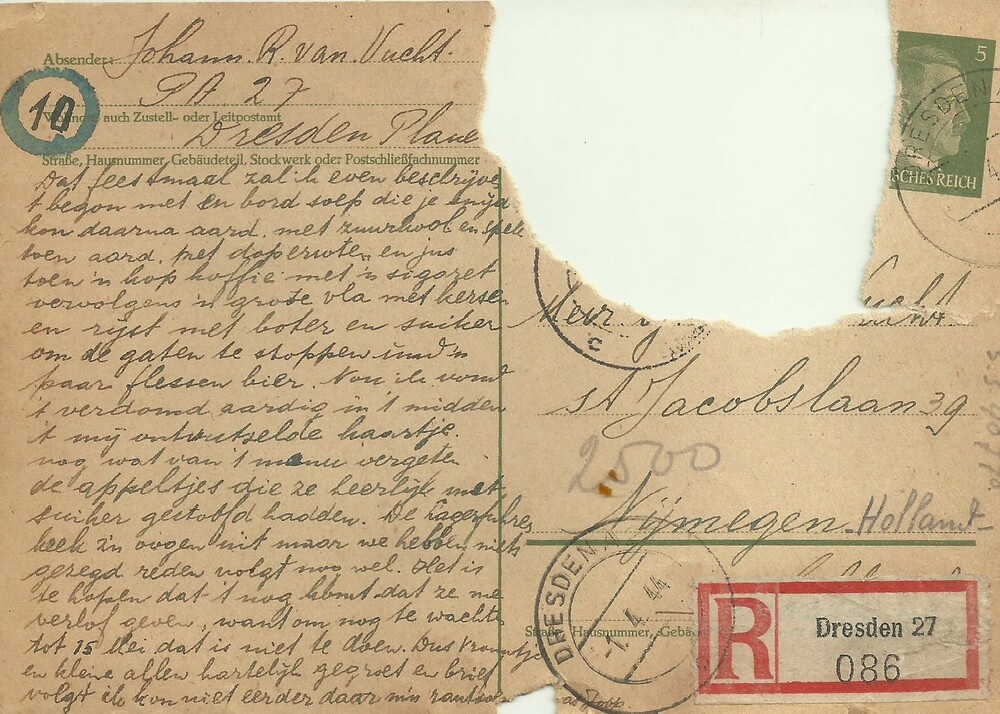 Absender: Johann. R. van Vucht.
PA 27
Wohnort, auch Zustell- oder Leitpostamt
Dresden Plaue
Straße, Hausnummer, Gebäudeteil, Stockwerk oder Postschließfachnummer
10
Dat feestmaal zal ik even beschrijve
't begon met en bord soep die je snijd
kon daarna aard. met zuurkool en spek
toen aard. met doperwten en jus
toen 'n kop koffie met 'n sigaret
vervolgens 'n grote vla met kersen
en rijst met boter en suiker
om de gaten te stoppen und 'n
paar flessen bier. Nou ik vond
't verdomd aardig in 't midden
't mij kaartje.
nog wat van 't menu vergeten
de appeltjes die ze heerlijk met
suiker gestoofd hadden. De Lagerfuhrer
keek z'n oogen uit maar we hebben niets
gezegd reden volgt nog wel. Het is
te hopen dat 't nog komt dat ze me
verlof geven, want om nog te wachte
tot 15 Mei dat is niet te doen. Dus Vrouwtje
en kleine allen hartelijk gegroet en brief
volgt ik kon niet eerder daar m'n
5
SCHES REICH
DRESDEN
4
c
St Jacobslaan 39
2500
Nijmegen Holland
DRESDEN
-1. 4. 44
Straße, Hausnummer, Gebäu
R
Dresden 27
086